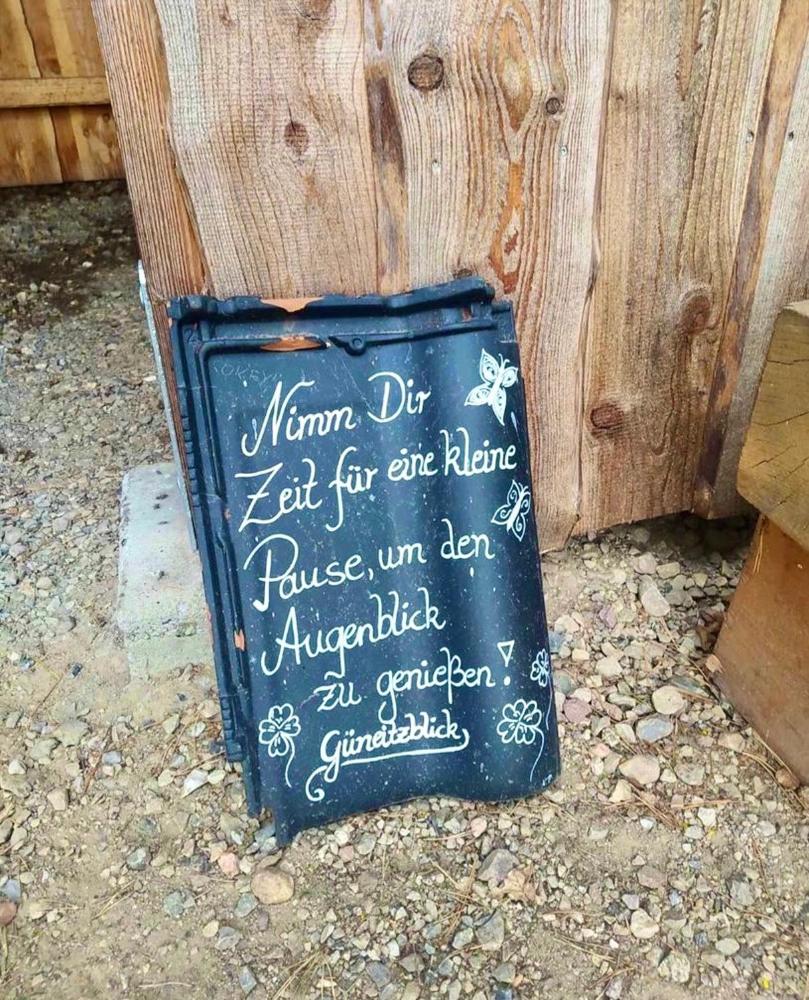 "OKEY"
Nimm Dir
Zeit für eine kleine
Pause, um den
Augenblick
zu genießen!
Güneitzblick